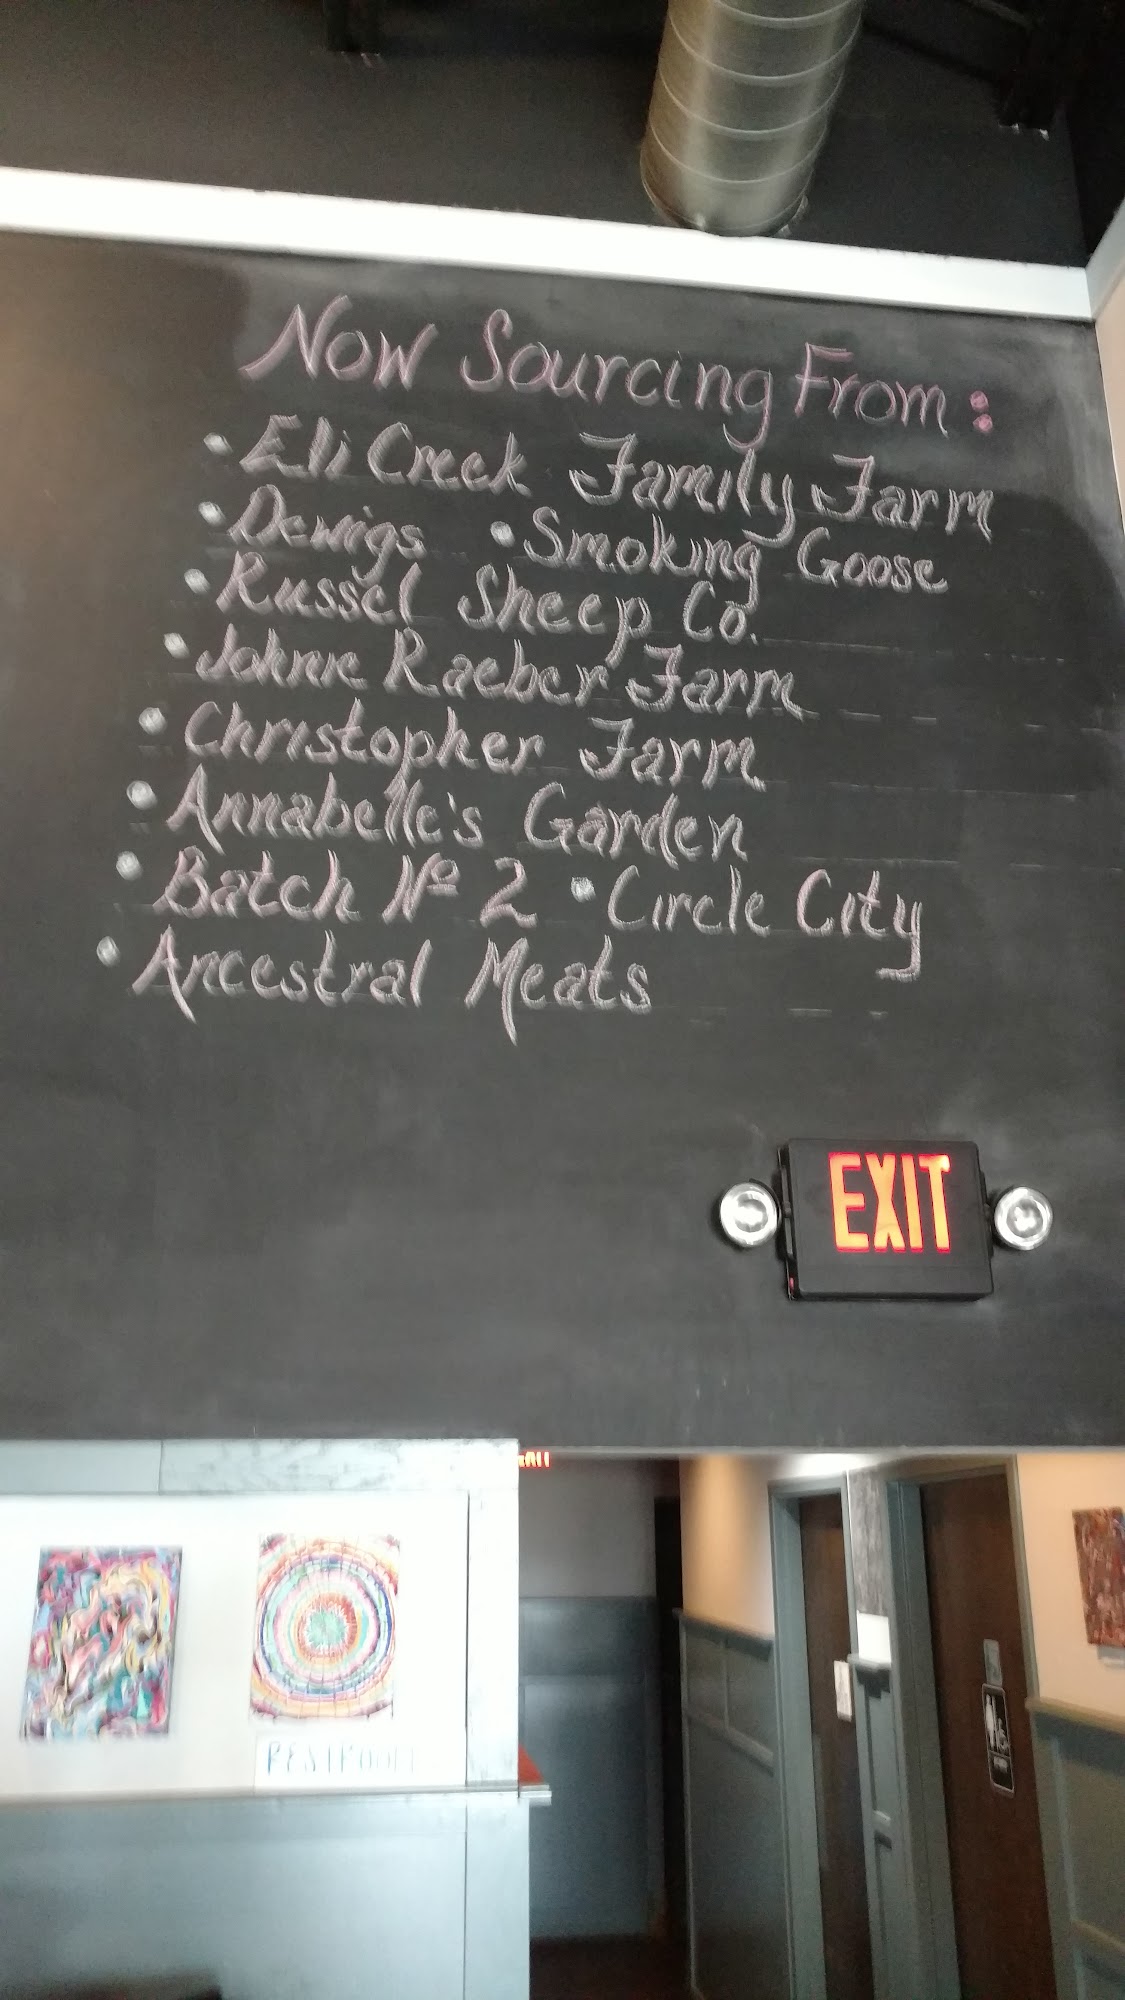 Now Sourcing From:
• Eli Creek Family Farm
• Dewigs • Smoking Goose
• Russel Sheep Co.
• Johnie Raeber Farm
• Christopher Farm
• Annabelle's Garden
• Batch Nº 2 • Circle City
• Ancestral Meats
EXIT
RESTROOM